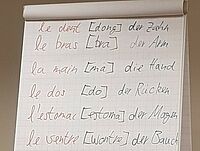 le dent [dong] der Zahn
le bras [bra] der Arm
la main [mã] die Hand
le dos [do] der Rücken
l'estomac [estoma] der Magen
le ventre [wontre] der Bauch